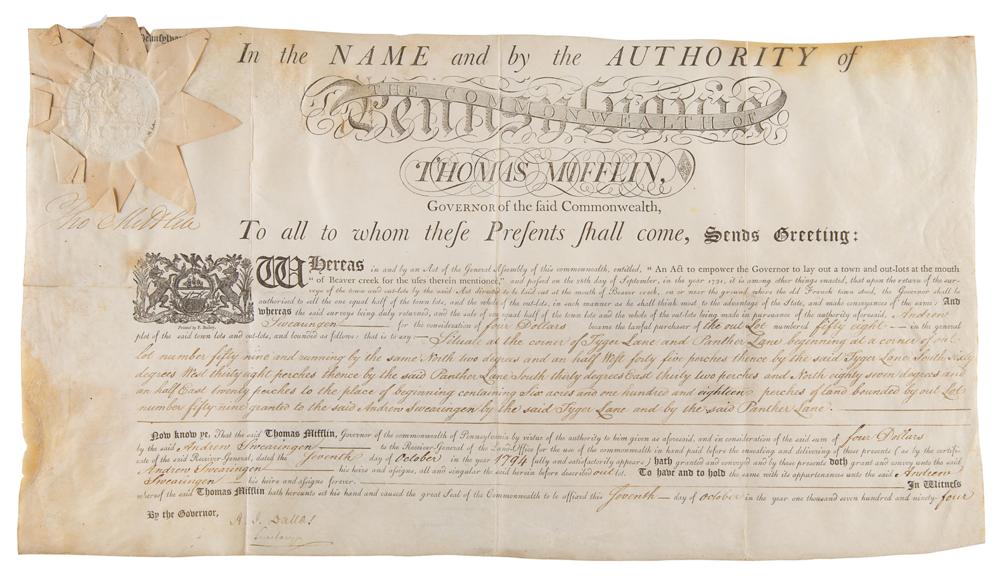 Pennsylva
In the NAME and by the AUTHORITY of
THE COMMONWEALTH OF
Pennsylvania
THOMAS MIFFLIN,
GOVERNOR of the said Commonwealth,
Tho Mifflin
To all to whom theſe Preſents ſhall come, Sends Greeting:
WHereas in and by an Act of the General Aſſembly of this commonwealth, entitled, “An Act to empower the Governor to lay out a town and out-lots at the mouth
“of Beaver creek for the uſes therein mentioned,” and paſſed on the 28th day of September, in the year 1791, it is among other things enacted, that upon the return of the ſur-
veys of the town and out-lots by the ſaid Act directed to be laid out at the mouth of Beaver creek, on or near the ground where the old French town ſtood, the Governor ſhall be
authoriſed to ſell the one equal half of the town lots, and the whole of the out-lots, in ſuch manner as he ſhall think moſt to the advantage of the State, and make conveyances of the ſame: And
whereas the ſaid ſurveys being duly returned, and the ſale of one equal half of the town lots and the whole of the out-lots being made in purſuance of the authority aforeſaid, Andrew
Swearingen for the conſideration of four Dollars became the lawful purchaſer of the out Lot numbered fifty eight in the general
Printed by F. Bailey.
plot of the ſaid town lots and out-lots, and bounded as follows: that is to ſay: Situate at the corner of Tyger Lane and Panther Lane beginning at a corner of out-
lot number fifty nine and running by the same North two degrees and an half West forty five perches thence by the said Tyger Lane South Sixty
degrees West thirty eight perches thence by the said Panther Lane South thirty degrees East thirty two perches and North eighty seven degrees and
an half East twenty perches to the place of Beginning containing Six acres and one hundred and eighteen perches of land bounded by out Lot
number fifty nine granted to the said Andrew Swearengen by the said Tyger Lane and by the said Panther Lane.
Now know ye, That the ſaid Thomas Mifflin, Governor of the commonwealth of Pennſylvania by virtue of the authority to him given as aforeſaid, and in conſideration of the ſaid ſum of four Dollars
by the ſaid Andrew Swearingen to the Receiver General of the Land Office for the uſe of the commonwealth in hand paid before the enſealing and delivering of theſe preſents (as by the certifi-
cate of the ſaid Receiver General, dated the Seventh day of October in the year 1794 fully and ſatisfactorily appears) hath granted and conveyed and by theſe preſents doth grant and convey unto the ſaid
Andrew Swearingen his heirs and aſſigns, all and ſingular the ſaid lot herein before deſcribed out lot. To have and to hold the ſame with its appurtenances unto the ſaid Andrew
Swearingen his heirs and aſſigns forever. In Witneſs
whereof the ſaid Thomas Mifflin hath hereunto ſet his hand and cauſed the great Seal of the Commonwealth to be affixed this Seventh day of October in the year one thouſand ſeven hundred and ninety-four
By the Governor,
A. J. Dallas
Secretary